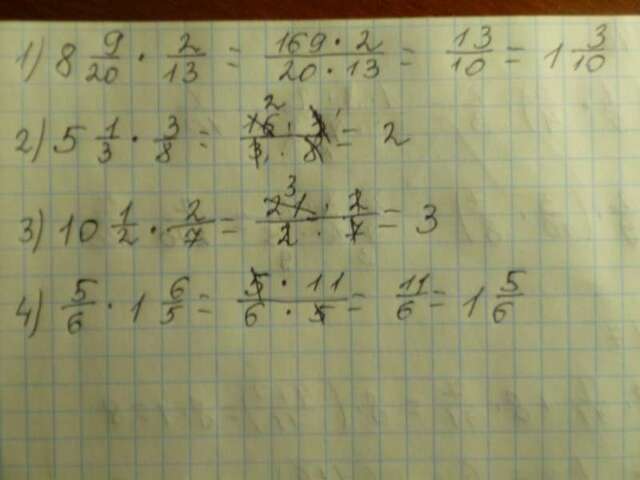 1) 8 9/20 · 2/13 = 169·2/20·13 = 13/10 = 1 3/10
2) 5 1/3 · 3/8 = 16·3/3·8 = 2
3) 10 1/2 · 2/7 = 21·2/2·7 = 3
4) 5/6 · 1 6/5 = 5·11/6·5 = 11/6 = 1 5/6